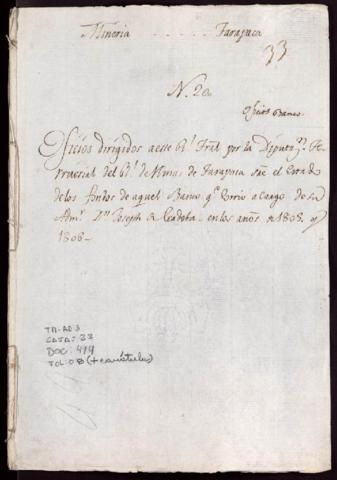 Mineria . . . . . Tarapaca
33
N. 20
Oficios Banco.
Oficios dirigidos a este Rl. Tral. por la Diputan. Te-
rritorial del Rl. de Minas de Tarapaca sre. el Estado
de los fondos de aquel Banco qe. corrio a cargo de su
Admr. Dn. Joseph de Cordoba. en los años de 1805. y
1806.-
TM-AD3
CAJA: 33
DOC: 494
FOL: 08 (+ carátula)